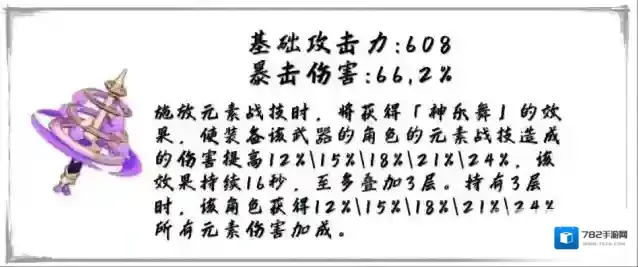 基础攻击力:608
暴击伤害:66.2%
施放元素战技时，将获得「神乐舞」的效
果，使装备该武器的角色的元素战技造成
的伤害提高12%\15%\18%\21%\24%，该
效果持续16秒，至多叠加3层。持有3层
时，该角色获得12%\15%\18%\21%\24%
所有元素伤害加成。
782手游网